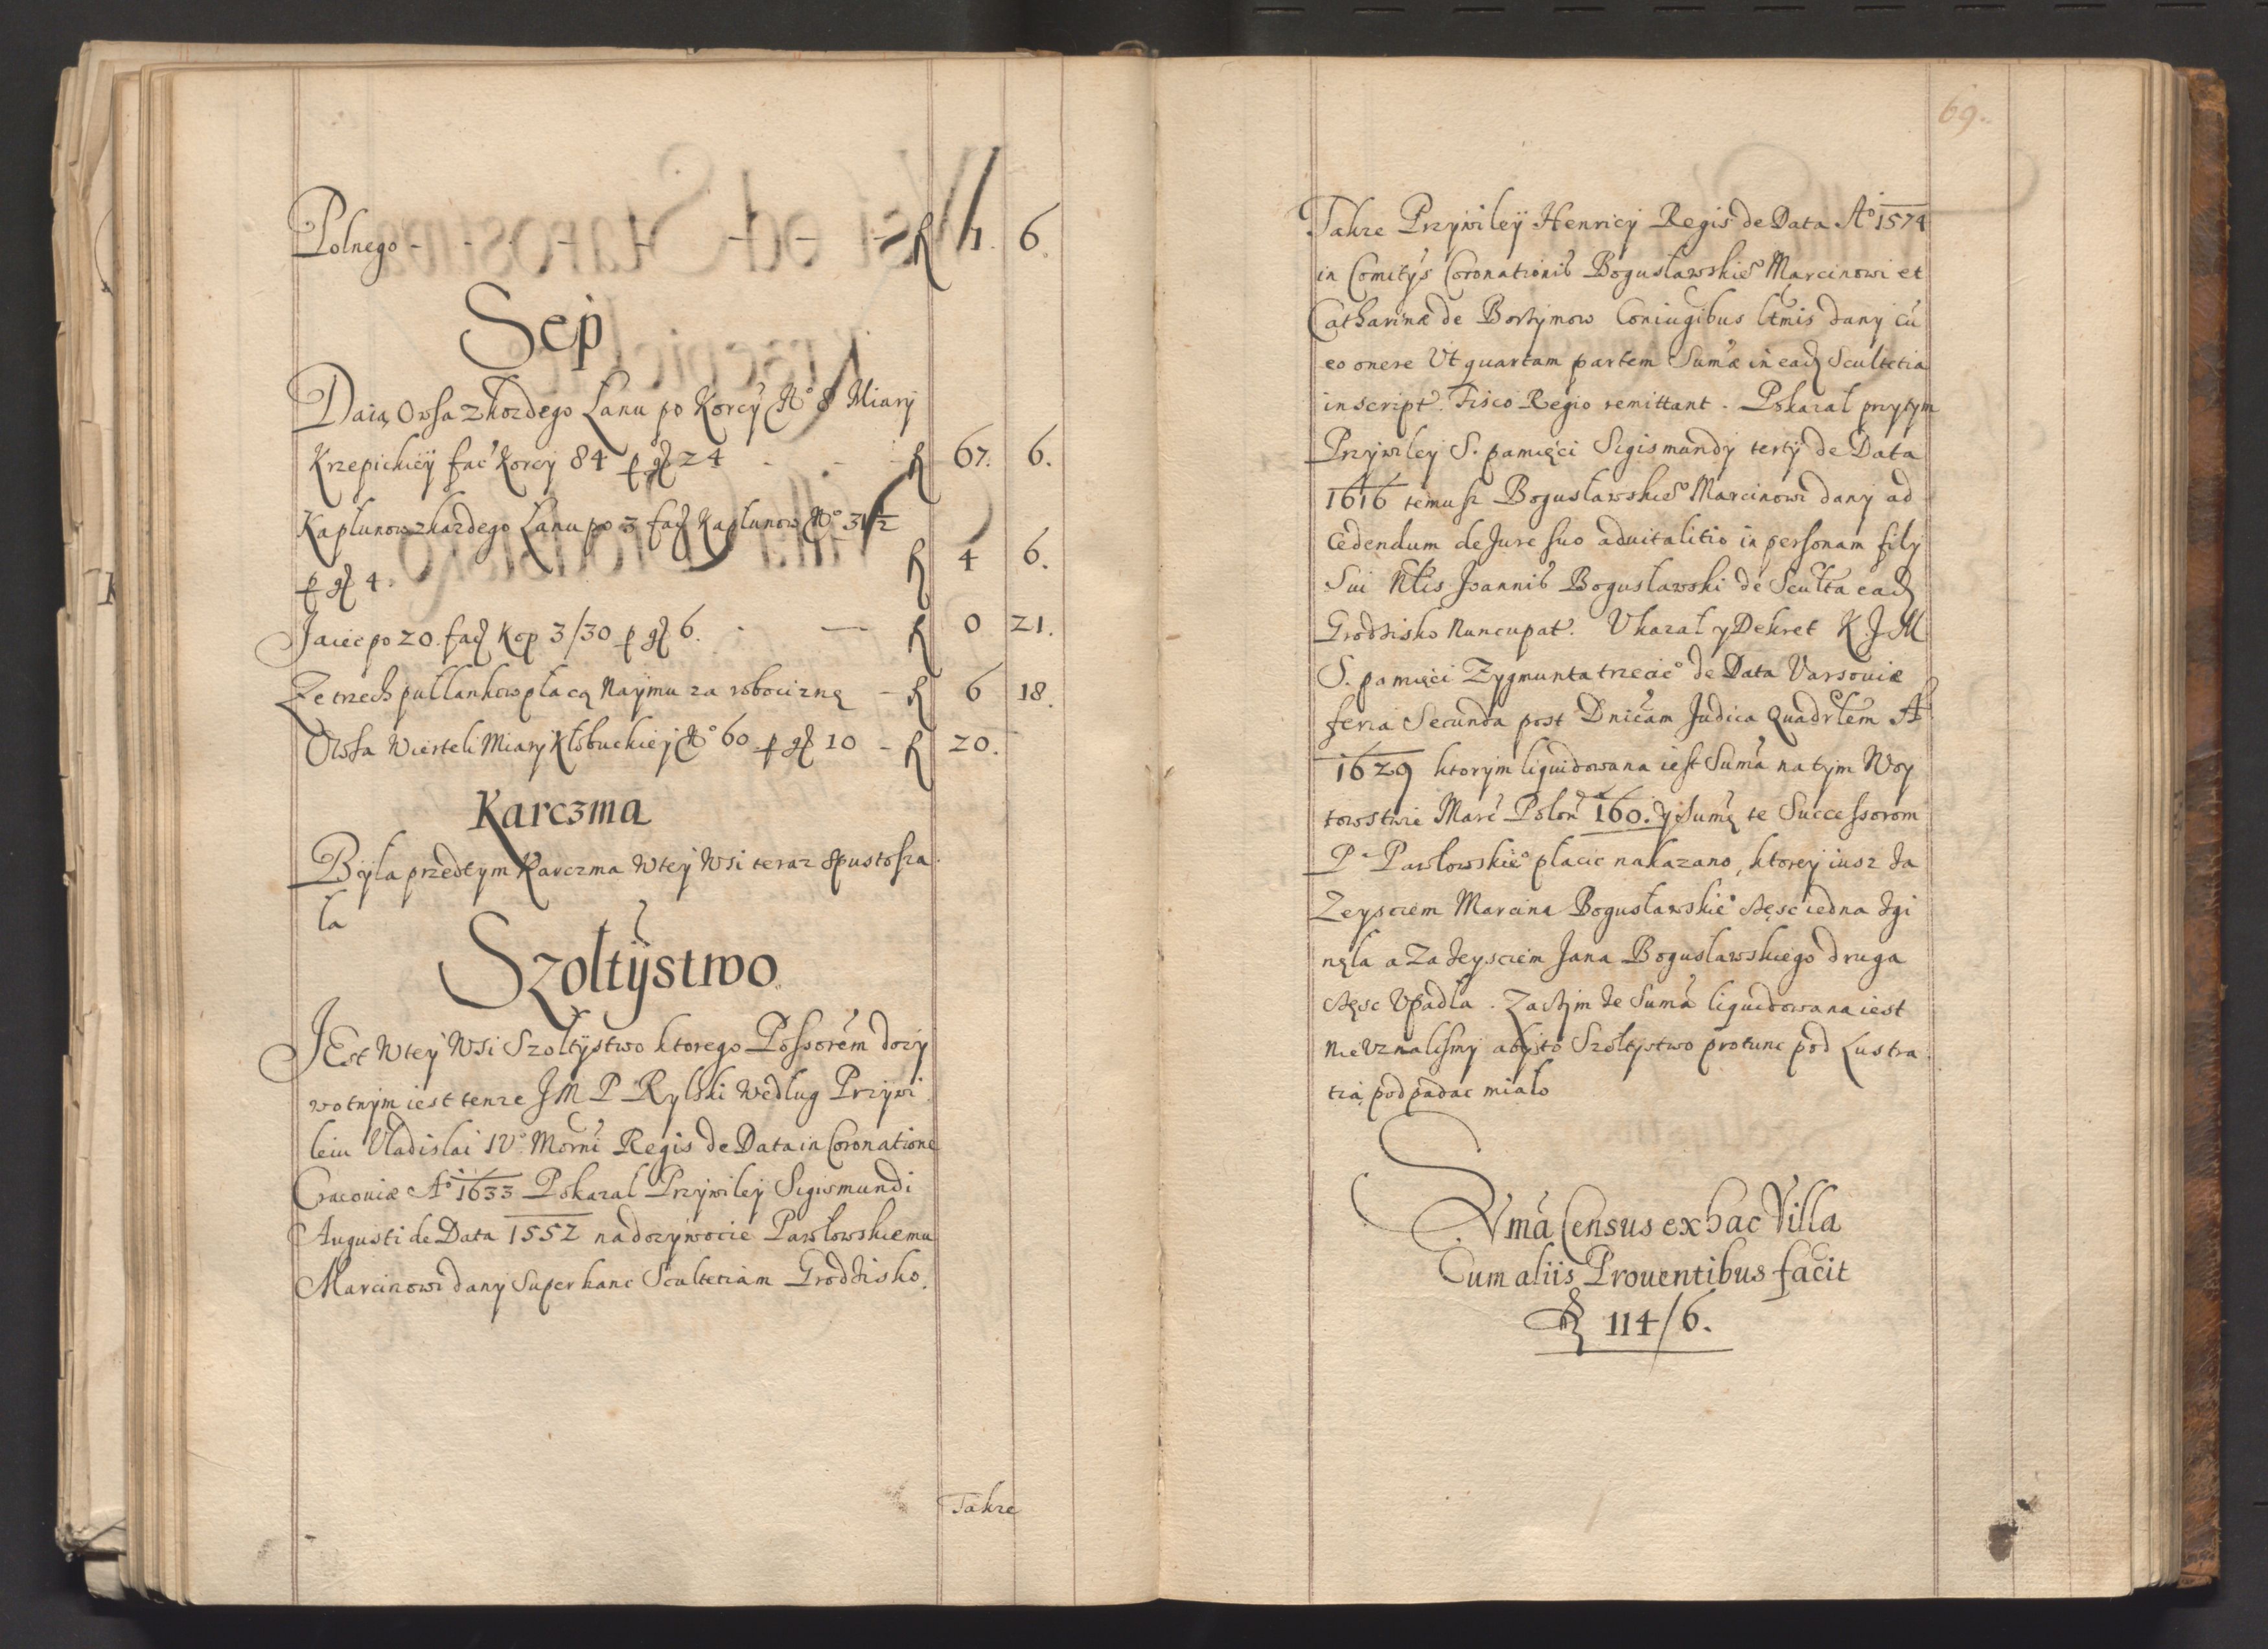 Polnego - - - - - - - ƒ 1. 6.
Sep
Daią Owsa z kozdego Łanu po Korcy No 8 Miary
Krzepickiey fac Korcy 84 p gſ 24 - - - ƒ 67. 6.
Kapłunow z kazdego Łanu po 3 fać Kapłunow No 31½
p gſ 4. ƒ 4 6.
Jaiec po 20. fać Kop 3/30 p gſ 6. - — ƒ 0 21.
Ze trzech pułłankow płacą Naymu za robociznę - ƒ 6 18.
Owsa Wierteli Miary Kłobuckiey No 60 p gſ 10 - ƒ 20.
Karczma
Była przedtym Karczma w tey Wsi teraz spustosza
ła
Szołtÿstwo
JEst w tey Wsi Szołtÿstwo ktorego Possorem dozy
wotnym iest tenze JM P Rylski według Przywi
leiu Vladislai IV° Morni Regis de Data in Coronatione
Cracoviæ A° 1633 Pokazal Przywiley Sigismundi
Augusti de Data 1552 na dozywocie Pawłowskiemu
Marcinowi dany Super hanc Scultetiam Grodzisko.
Takze
69.
Takze Przywiley Henricy Regis de Data A° 1574
in Comitÿs Coronationis Bogusławskie° Marcinowi et
Catharinæ de Borzymow Coniugibus Ltmis dany cu
eo onere Vt quartam partem Sumæ in eadʒ Scultetia
inscript. Fisco Regio remittant. Pokazal przytym
Przywiley S. pamięci Sigismundy tertÿ de Data
1616 temusz Bogusławskie° Marcinowi dany ad
Cedendum de Jure suo aduitalitio in personam filÿ
Sui Nlis Joannis Bogusławski de Sculta eadʒ
Grodzisko Nuncupat. Vkazal y Dekret K J M
S. pamięci Zygmunta trzecie° de Data Varsoviæ
feria Secunda post Dnicam Judica Quadrlem A°
1629 ktorym liquidowana iest Suma na tym Woy
towstwie Marc Polon 160. y Sumę te Successorom
P. Pawłowskie° płacic nakazano, ktorey iusz za
Zeysciem Marcina Bogusławskie° częsc iedna zgi
nęła a Za zeysciem Jana Bogusławskiego druga
częsc Vpadła. Zaczym ze Suma liquidowana iest
nie Vznalismy aby to Szołtystwo protunc pod Lustra
tią podpadac miało
Suma Census ex hac Villa
Cum aliis Prouentibus facit
ƒ 114/6.